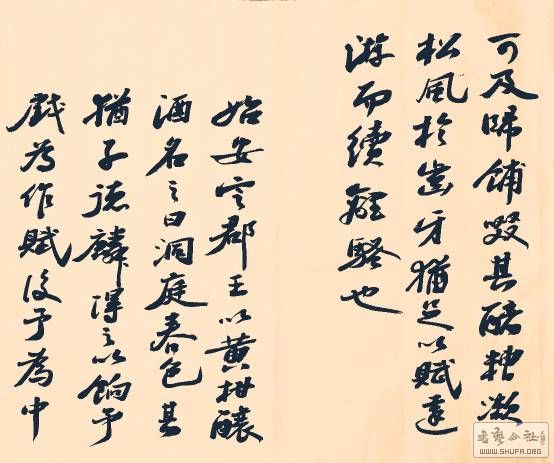 可及歸餔啜其醨糟漱
松風於齒牙猶足以賦遠
游而續離騷也
始安定郡王以黃柑釀
酒名之曰洞庭春色其
猶子德麟得之以餉予
戲為作賦後予為中
書藝公社
WWW.SHUFA.ORG